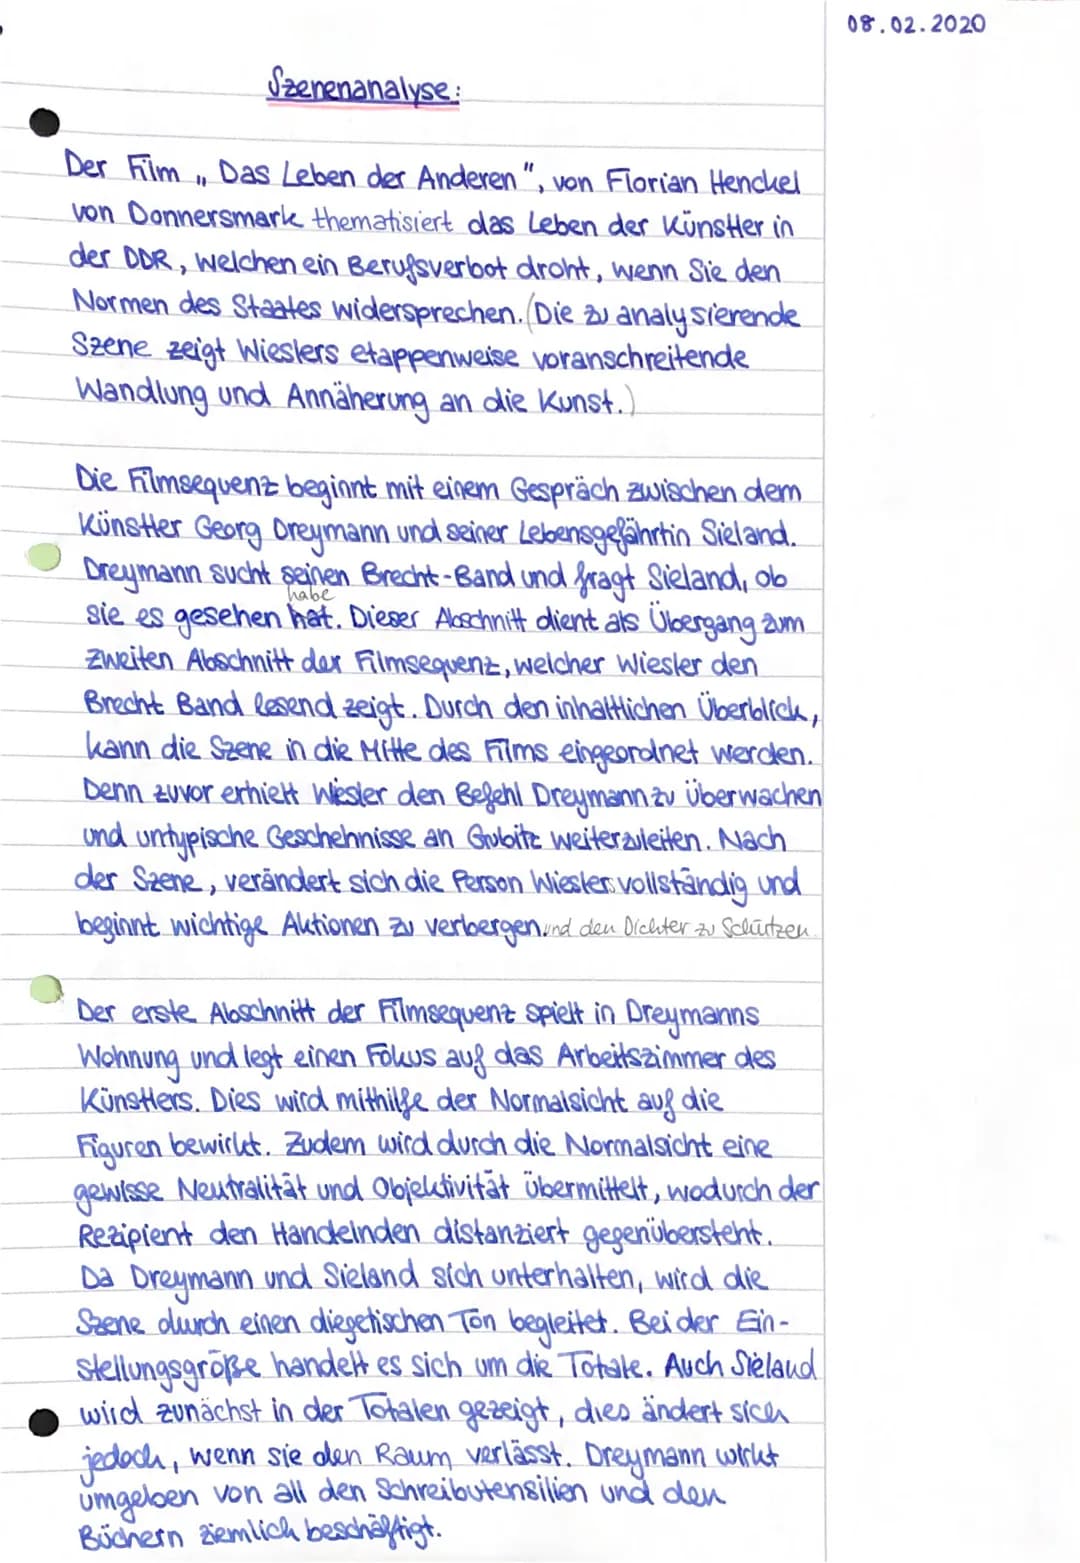 08.02.2020
Szenenanalyse:
Der Film „Das Leben der Anderen", von Florian Henckel
von Donnersmark thematisiert das Leben der Künstler in
der DDR, welchen ein Berufsverbot droht, wenn Sie den
Normen des Staates widersprechen. (Die zu analysierende
Szene zeigt Wieslers etappenweise voranschreitende
Wandlung und Annäherung an die Kunst.)
Die Filmsequenz beginnt mit einem Gespräch zwischen dem
Künstler Georg Dreymann und seiner Lebensgefährtin Sieland.
Dreymann sucht seinen Brecht-Band und fragt Sieland, ob
habe
sie es gesehen hat. Dieser Abschnitt dient als Übergang zum
zweiten Abschnitt der Filmsequenz, welcher Wiesler den
Brecht Band lesend zeigt. Durch den inhaltlichen Überblick,
kann die Szene in die Mitte des Films eingeordnet werden.
Denn zuvor erhielt Wiesler den Befehl Dreymann zu überwachen
und untypische Geschehnisse an Grubitz weiterzuleiten. Nach
der Szene, verändert sich die Person Wiesler vollständig und
beginnt wichtige Aktionen zu verbergen. und den Dichter zu Schützen
Der erste Abschnitt der Filmsequenz spielt in Dreymanns
Wohnung und legt einen Fokus auf das Arbeitszimmer des
Künstlers. Dies wird mithilfe der Normalsicht auf die
Figuren bewirkt. Zudem wird durch die Normalsicht eine
gewisse Neutralität und Objektivität übermittelt, wodurch der
Rezipient den Handelnden distanziert gegenübersteht.
Da Dreymann und Sieland sich unterhalten, wird die
Szene durch einen diegetischen Ton begleitet. Bei der Ein-
stellungsgröße handelt es sich um die Totale. Auch Sieland
wird zunächst in der Totalen gezeigt, dies ändert sich
jedoch, wenn sie den Raum verlässt. Dreymann wirkt
umgeben von all den Schreibutensilien und den
Büchern ziemlich beschäftigt.